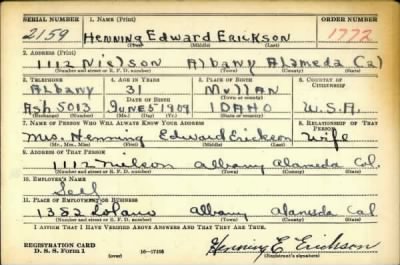 SERIAL NUMBER 1. NAME (Print) ORDER NUMBER
2159 Henning Edward Erickson 1772
(First) (Middle) (Last)
2. ADDRESS (Print)
1112 Nielson Albany Alameda Cal
(Number and street or R. F. D. number) (Town) (County) (State)
3. TELEPHONE 4. AGE IN YEARS 5. PLACE OF BIRTH 6. COUNTRY OF CITIZENSHIP
Albany 31 Mullan
DATE OF BIRTH (Town or county)
Ash 5013 June 5 1909 IDAHO U.S.A.
(Exchange) (Number) (Mo.) (Day) (Yr.) (State or country)
7. NAME OF PERSON WHO WILL ALWAYS KNOW YOUR ADDRESS 8. RELATIONSHIP OF THAT PERSON
Mrs. Henning Edward Erickson Wife
(Mr., Mrs., Miss) (First) (Middle) (Last)
9. ADDRESS OF THAT PERSON
1112 Neilson Albany Alameda Cal.
(Number and street or R. F. D. number) (Town) (County) (State)
10. EMPLOYER'S NAME
Self
11. PLACE OF EMPLOYMENT OR BUSINESS
1382 Solano Albany Alameda Cal
(Number and street or R. F. D. number) (Town) (County) (State)
I AFFIRM THAT I HAVE VERIFIED ABOVE ANSWERS AND THAT THEY ARE TRUE.
REGISTRATION CARD
D. S. S. Form 1 (over) Henning E. Erickson
(Registrant's signature)